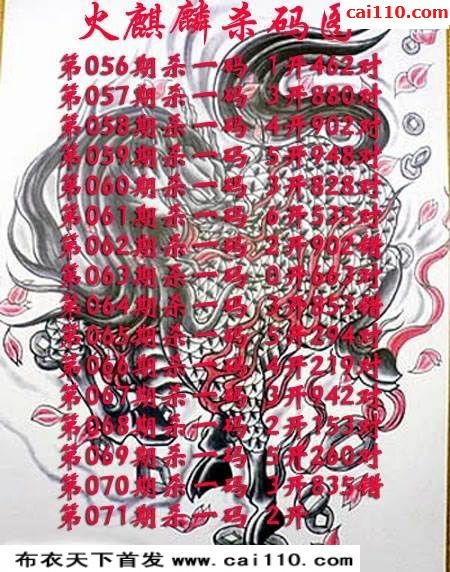 cai110.com
火麒麟杀码
第056期杀一码 1开462对
第057期杀一码 3开880对
第058期杀一码 4开902对
第059期杀一码 5开948对
第060期杀一码 3开828对
第061期杀一码 6开535对
第062期杀一码 2开902错
第063期杀一码 0开667对
第064期杀一码 3开853错
第065期杀一码 5开294对
第066期杀一码 4开219对
第067期杀一码 3开942对
第068期杀一码 2开153对
第069期杀一码 5开260对
第070期杀一码 3开835错
第071期杀一码 2开
布衣天下首发 www.cai110.com